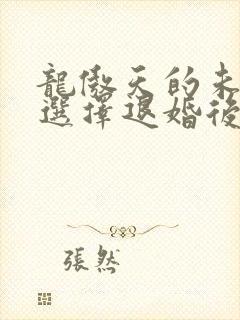 龍傲天的未
選擇退婚後
張然